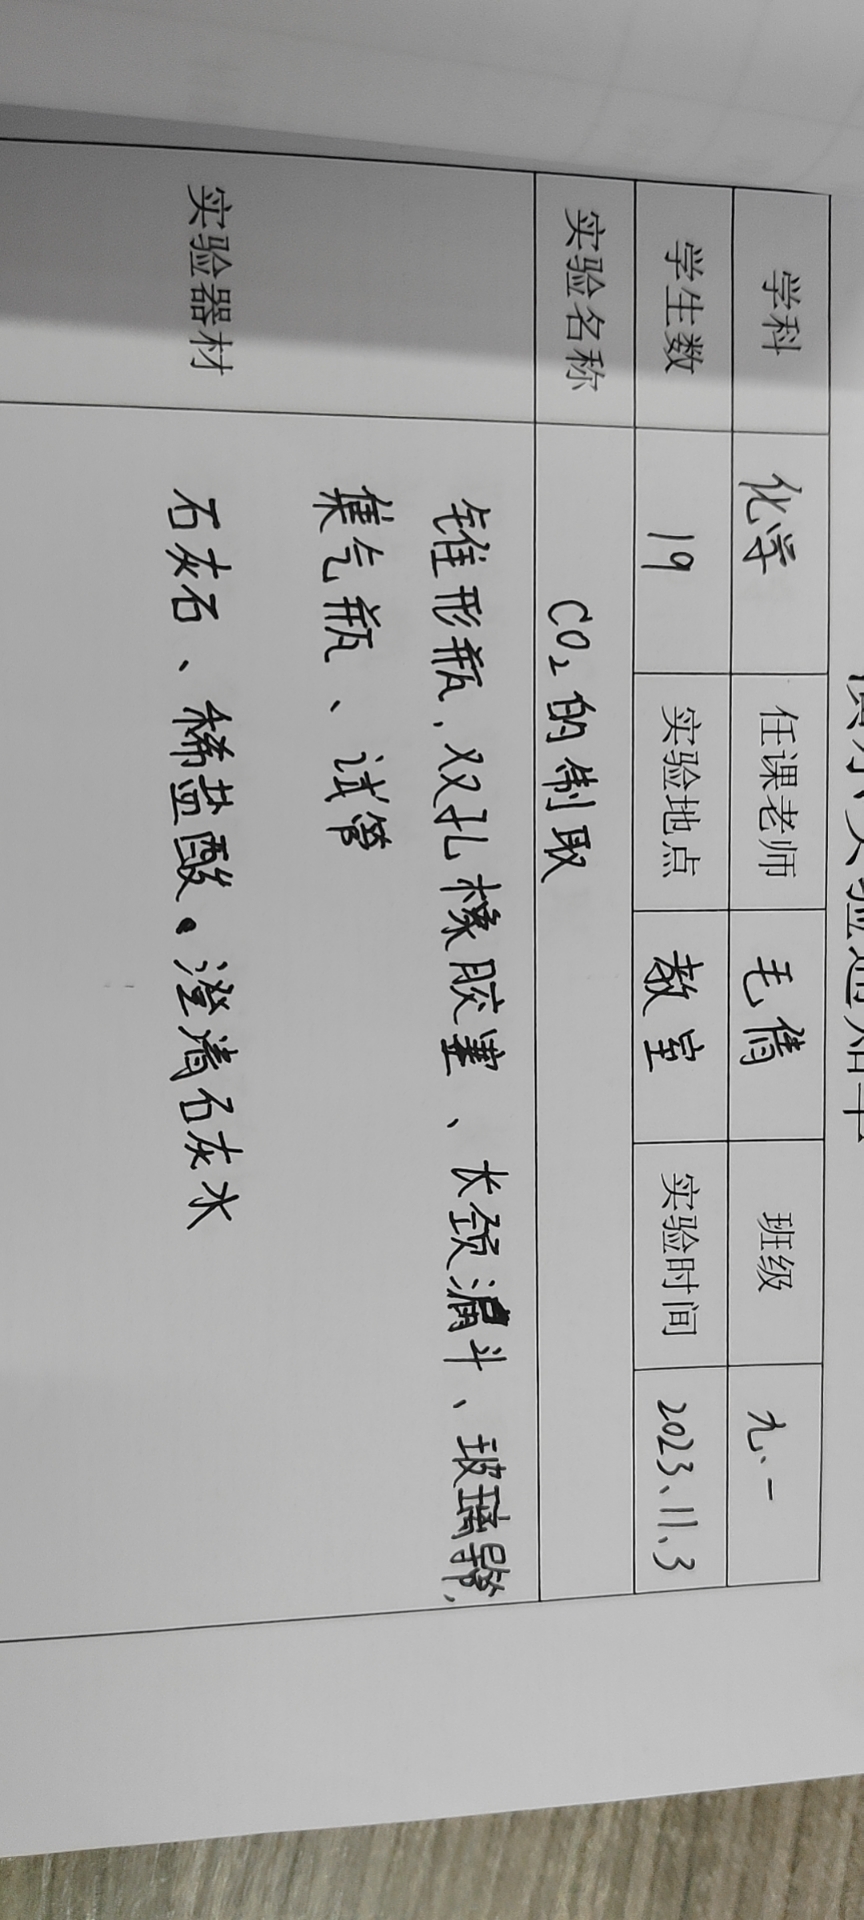 演示实验通知单
学科 化学 任课老师 毛倩 班级 九、一
学生数 19 实验地点 教室 实验时间 2023、11、3
实验名称 CO₂的制取
实验器材
锥形瓶、双孔橡胶塞、长颈漏斗、玻璃导管、
集气瓶、试管
石灰石、稀盐酸。澄清石灰水